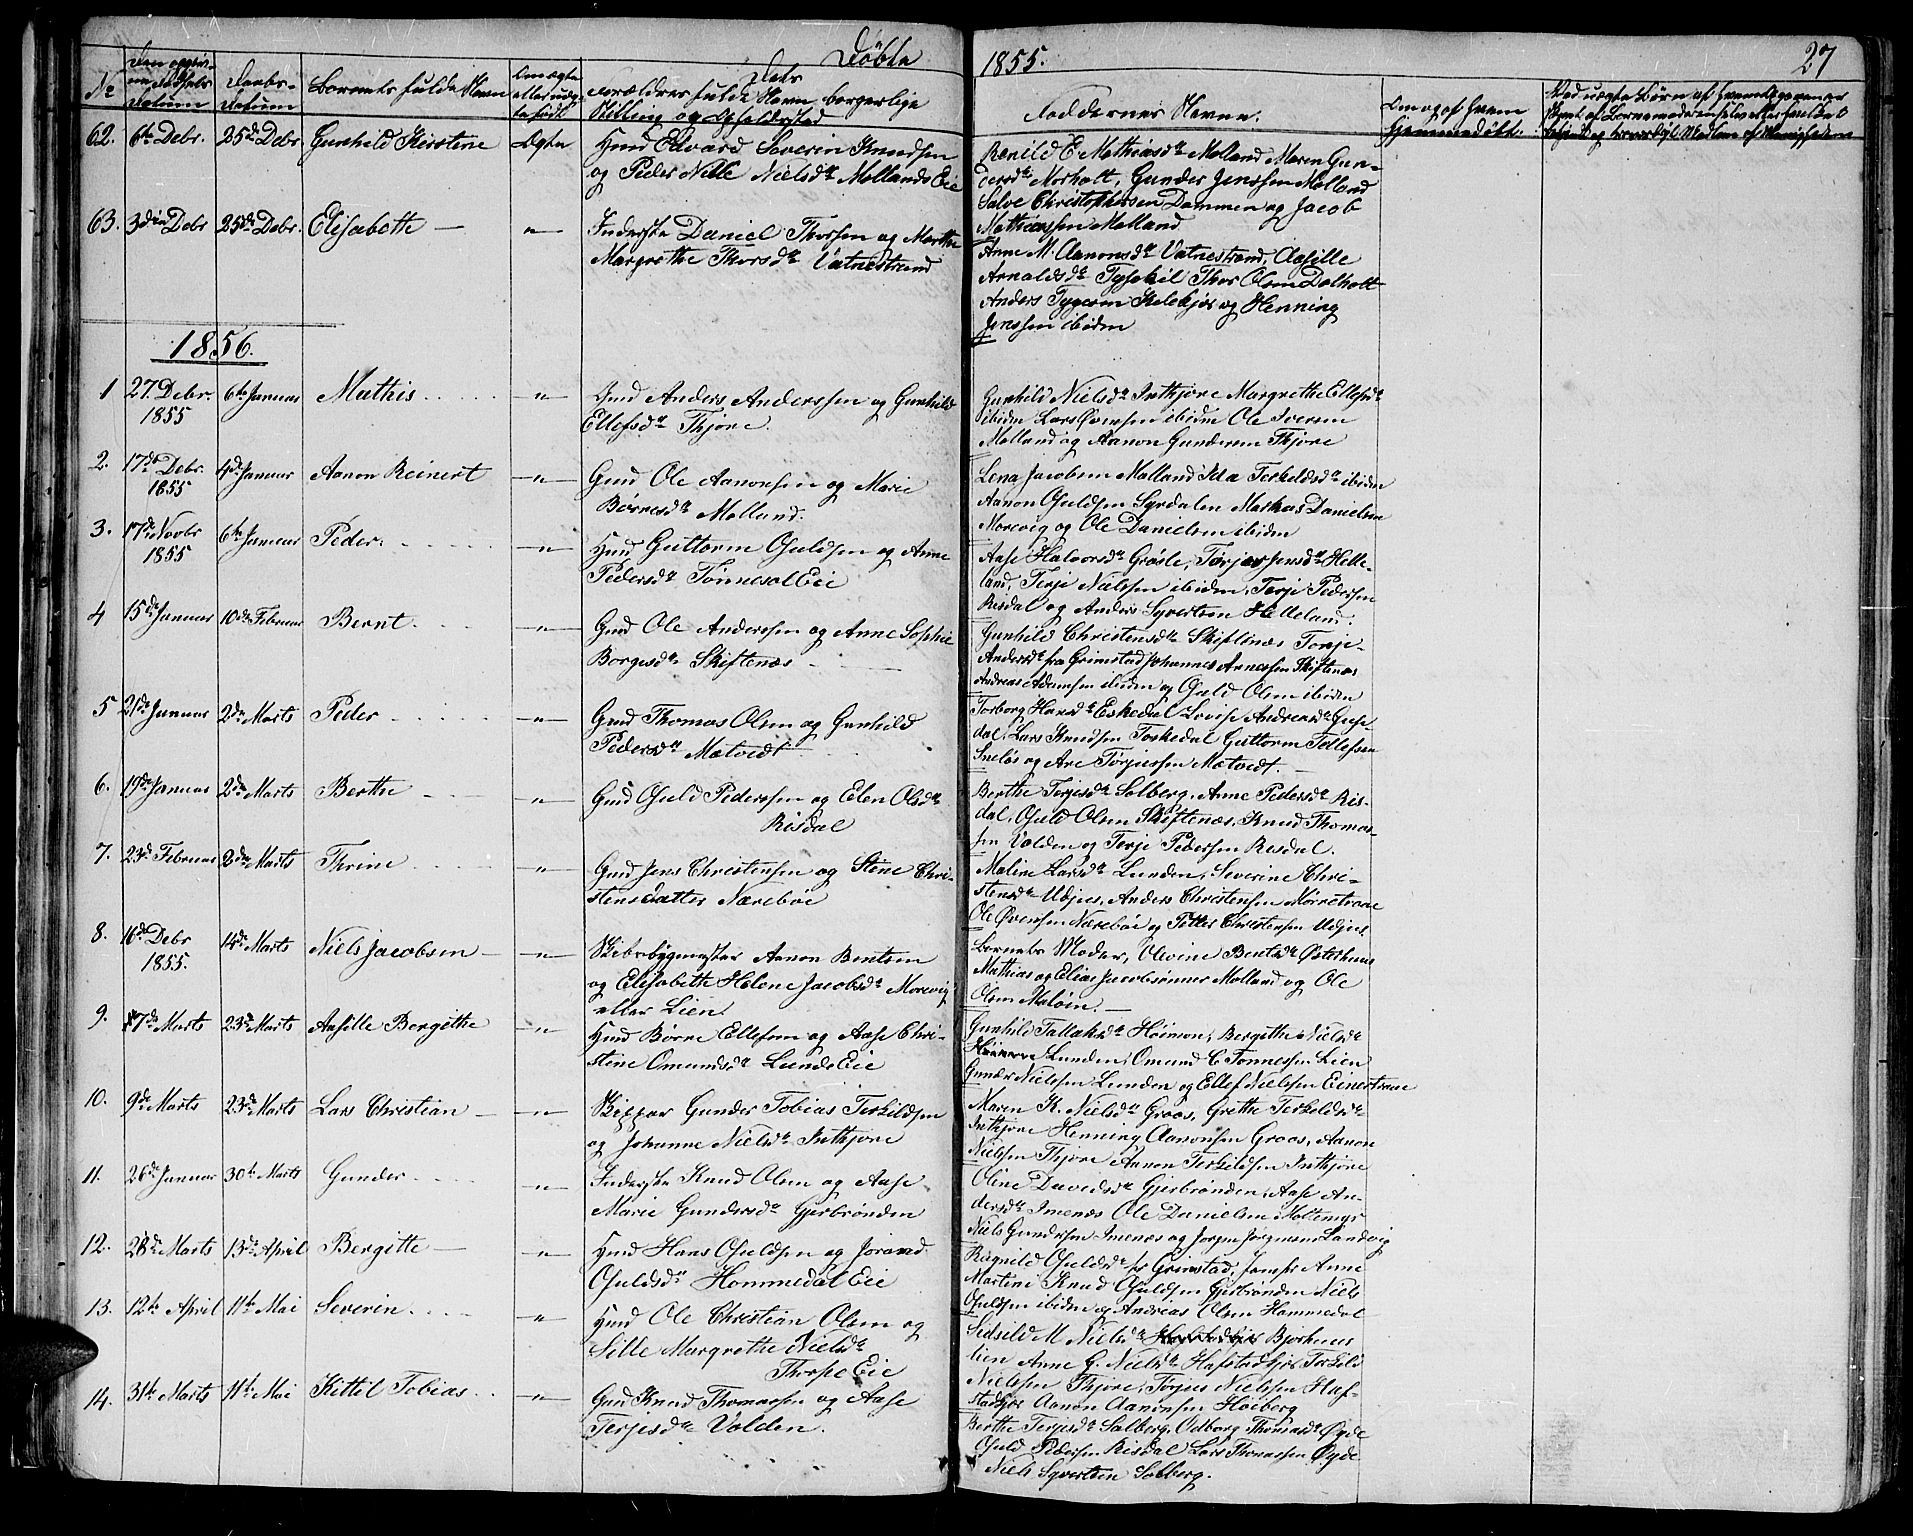 Døbte
1855.
27
№
Daabs-
Datum
Barnets fulde Navn
Forældres fulde Navn, borgerlige
Stilling og Opholdssted
Faddernes Navne.
Om og af hvem
hjemmedøbt.
62. 6te Debr. 25de Debr. Gunhild Kirstine Ægte
Hmd Edvard Severin Knudsen
og Peder Nille Nielsdr Mollands Eie
Rønild E. Mathiasdr Molland Maren Gun-
dersdr Morholt, Gunder Jenssen Molland
Salve Christophersen Dammen og Jacob
Mathiassen Molland
63. 3die Debr 25de Debr. Elisabeth — " —
Inderste Daniel Thorsen og Marthe
Margrethe Thorsdr Vatnestrand
Anne M. Aanonsdr Vatnestrand, Aasille
Arnoldsdr Tyskil Thor Olsen Dalholt
Anders Tygesen Kilekjær og Henning
Jenssen ibiden
1856.
1 27. Debr. 1855 6te Januar Mathis — " —
Gmd Anders Anderssen og Gunhild
Ellefsdr Thjøre.
Gunhild Nielsdr Inthjøre Margrethe Ellefsdr
ibiden Lars Øvensen ibiden Ole Iversen
Molland og Aanon Gundersen Thjøre
2. 17de Debr. 1855 4de Januar Aanon Reinert — " —
Gmd Ole Aanonsen og Marie
Børresdr Molland.
Lena Jacobsen Molland Ida Terkeldsdr ibiden
Aanon Osuldsen Syrdalen Markus Danielsen
Morevig og Ole Danielsen ibiden
3. 17de Novbr 1855 6te Januar Peder. — " —
Hmd Guttorm Osuldsen og Anne
Pedersdr Tønnesol Eie
Aase Halvorsdr Grøsle, Torjer Jensdr Helle-
land, Terje Nielssen ibiden, Terje Pederssen
Risdal og Anders Syvertsen Helleland.
4 15de Januar 10de Februar Bernt. — " —
Gmd Ole Anderssen og Anne Sophie
Borgesdr Skiftenæs
Gunhild Christensdr Skiftenæs Tonje-
Andersdr fra Grimstad Johannes Arnessen Skiftenæs
Andreas Adamsen ibiden og Osuld Olsen ibiden
5 21de Januar 2den Marts Peder — " —
Gmd Thomas Olsen og Gunhild
Pedersdr Mætvedt
Torborg Hansdr Eskedal Lovise Andreasdr Guse-
dal, Lars Knudssen Toskedal Guttorm Tellefsen
Sneløs og Are Torjussen Mætvedt.
6. 19de Januar 2den Marts Berthe — " —
Gmd Osuld Pederssen og Elen Olsdr
Risdal
Berthe Terjesdr Solberg, Anne Pedersdr Ris-
dal, Osuld Olsen Skiftenæs, Knud Thomas-
sen Volden og Terje Pederssen Risdal.
7. 23de Februar 2den Marts Thrine — " —
Gmd Jens Christensen og Stine Chri-
stensdatter Nærebøe
Maline Larsdr Lunden, Severine Chri-
stensdr Udjus, Anders Christensen Mørretrane
Ole Øvensen Nærebøe og Petter Christensen Udjus.
8. 16de Debr 1855. 14de Marts Niels Jacobsen — " —
Skibsbygmester Aanon Bentsen
og Elisabeth Helene Jacobsdr Morevig
eller Lien.
Barnets Moder, Olevine Bentsdr Østerhuus
Mathias og Elias Jacobsønner Molland og Ole
Olsen Maløen.
9. 17de Marts 23de Marts Aasille Bergithe — " —
Hmd Børre Ellefsen og Aase Chri-
stine Omundsdr Lunds Eie
Gunhild Tallaksdr Høimon, Bergithe Nielsdr
Lunden, Omund C. Tønnessen Lien
Gunder Nielssen Lunden og Ellef Nielssen Einertrane
10. 9de Marts 23de Marts Lars Christian — " —
Skipper Gunder Tobias Terkildsen
og Johanne Nielsdr Inthjøre
Maren K. Nielsdr Groos, Grethe Terkeldsdr
Inthjøre Henning Aanonsen Groos, Aanon
Nielssen Thjøre Aanon Terkildsen Inthjøre
11. 26de Januar 30te Marts Gunder — " —
Inderste Knud Olsen og Aase
Marie Gundersdr Gjerbrønden
Oline Davidsdr Gjerbrønden, Aase An-
dersdr Imenæs Ole Danielsen Moltemyr
Niels Gundersen Imenæs og Jørgen Jørgensen Landvig
12. 28de Marts 13de April Bergitte — " —
Hmd Hans Osuldsen og Jorand
Osuldsdr Hommedal Eie
Ragnild Osuldsdr fr Grimstad, Jomfr Anne
Martini Knud Osuldsen Gjerbrønden Niels
Osuldsen ibiden og Andreas Olsen Hommedal
13. 12te April 11te Mai Severin — " —
Hmd Ole Christian Olsen og
Sille Margrethe Nielsdr
Thorpe Eie
Sidsild M. Nielsdr Bjorhuus
lien Anne G. Nielsdr Hafstadkjer Terkild
Nielssen Thjøre, Torjus Nielssen Haf-
stadkjer Aanon Aanonsen Høiberg
14. 31te Marts 11te Mai Kittil Tobias — " —
Gmd Knud Thomassen og Aase
Terjesdr Volden.
Berthe Terjesdr Solberg, Odborg Thomasdr Øgde
Osuld Pederssen Risdal Lars Thomassen Øgde
Niels Syvertsen Solberg.